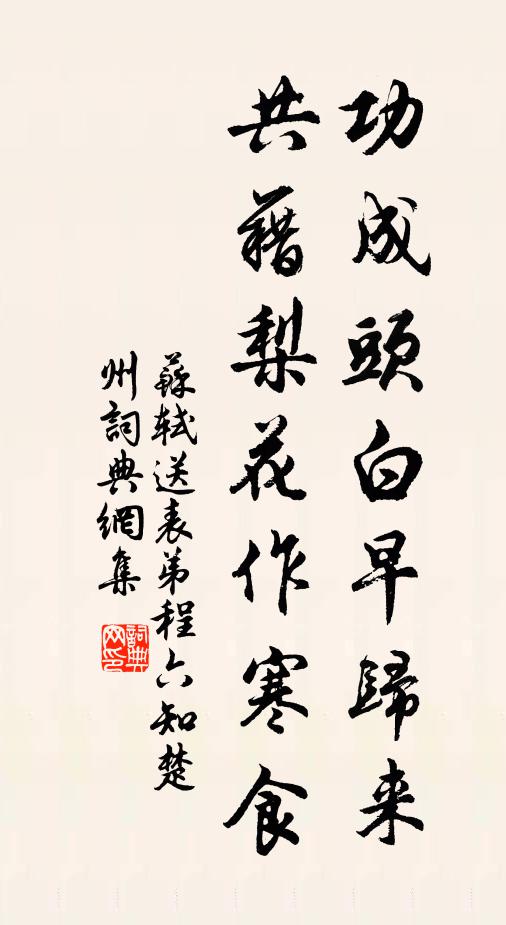 功成頭白早歸来
共藉梨花作寒食
蘇軾送表弟程六知楚
州詞典網集
詞典网印